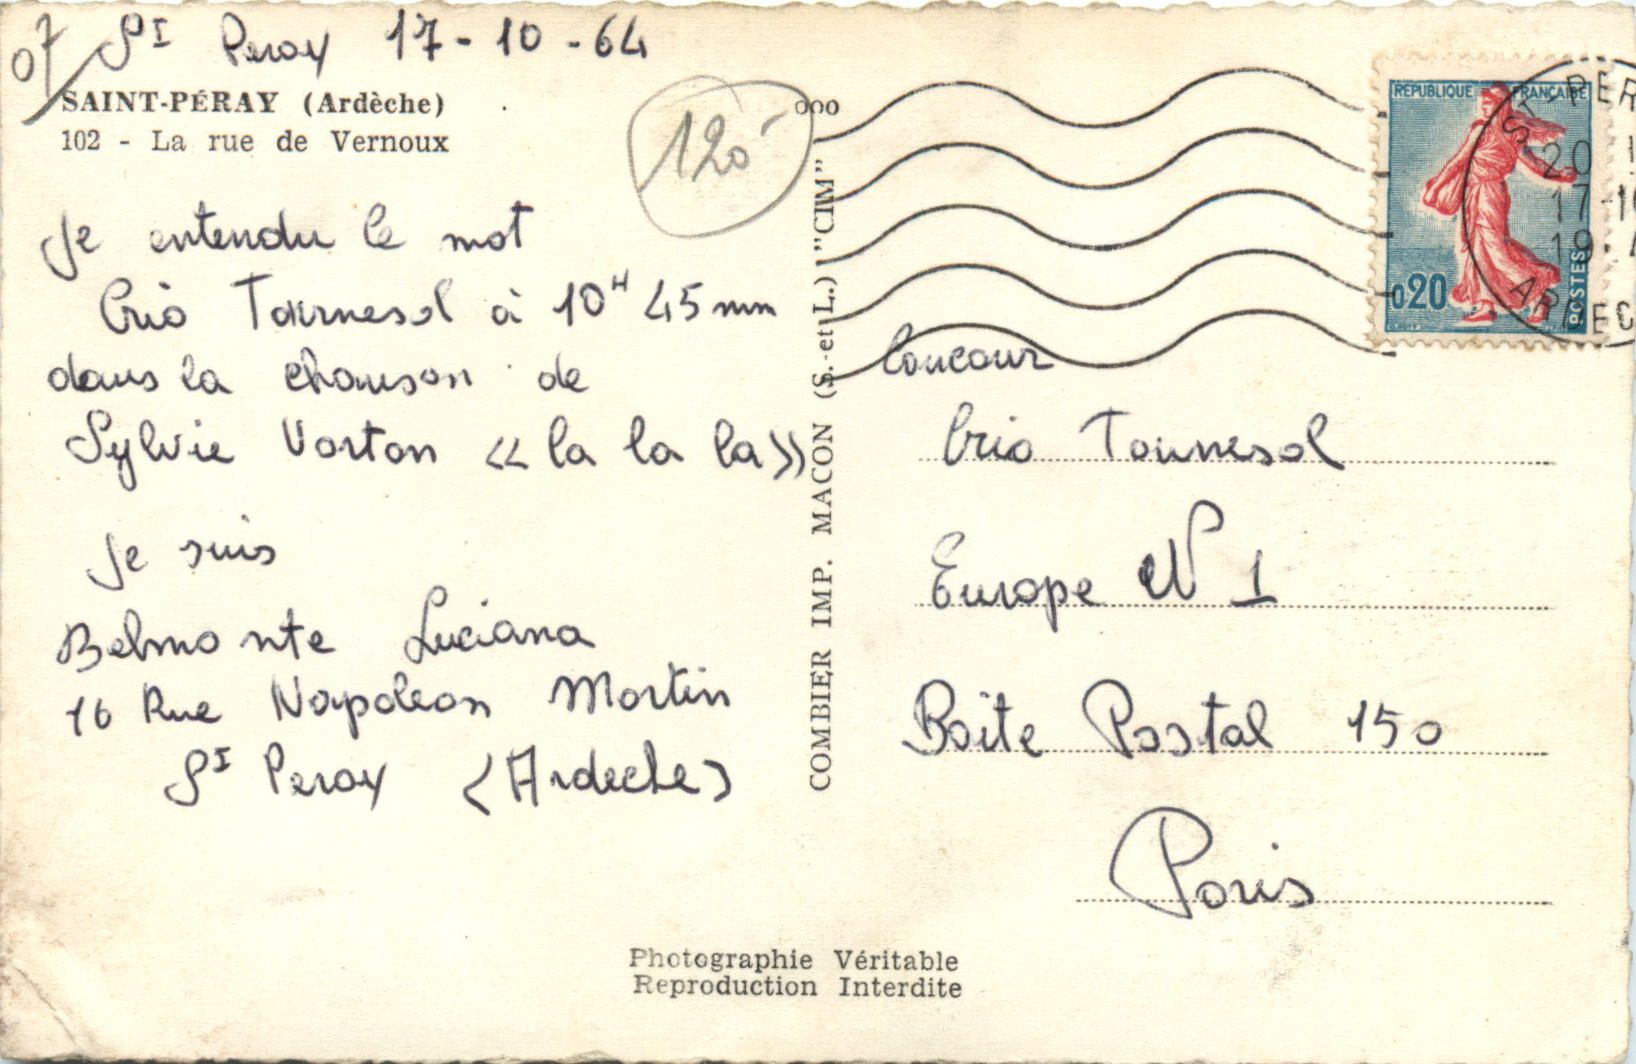 07
St Peray 17-10-64
SAINT-PÉRAY (Ardèche)
102 - La rue de Vernoux
120
Je entendu le mot
Crio Tournesol à 10H 45 mn
dans la chanson de
Sylvie Vartan << la la la >>
Je suis
Belmonte Luciana
16 Rue Napoleon Martin
St Peray (Ardeche)
ooo
COMBIER IMP. MACON (S.-et-L.) "CIM"
RÉPUBLIQUE FRANÇAISE
0,20
POSTES
ST-PER
20
17-10
19
ARDEC
Concour
Crio Tournesol
Europe N 1
Boite Postal 150
Paris
Photographie Véritable
Reproduction Interdite